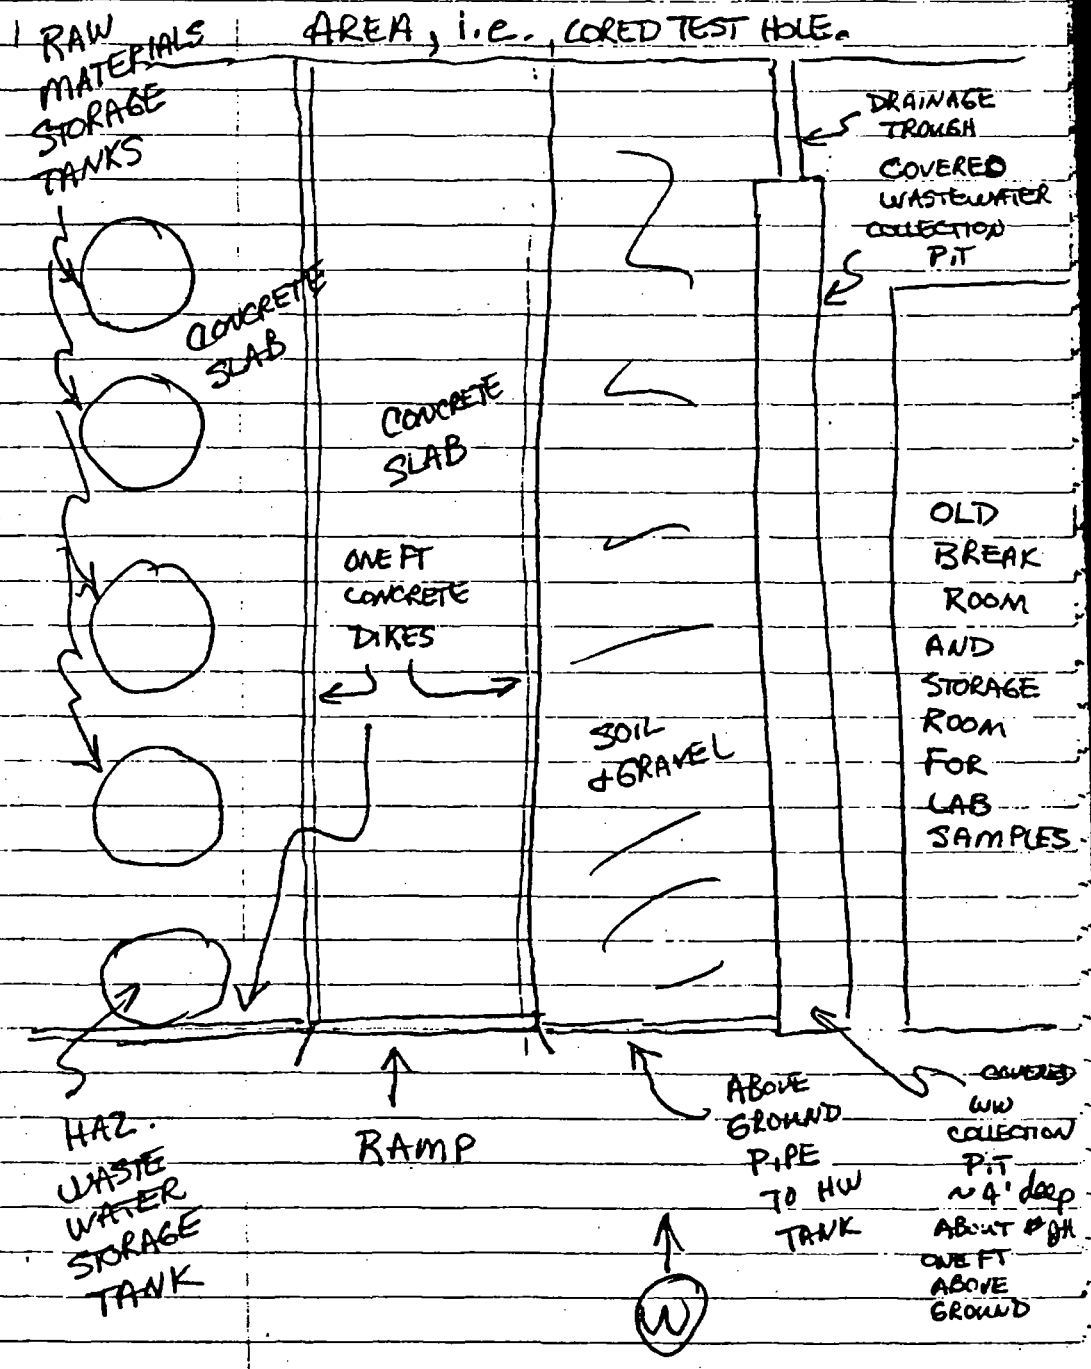 AREA, i.e. CORED TEST HOLE.
RAW
MATERIALS
STORAGE
TANKS
DRAINAGE
TROUGH
COVERED
WASTEWATER
COLLECTION
PiT
CONCRETE
SLAB
CONCRETE
SLAB
ONE FT
CONCRETE
DIKES
SOIL
+ GRAVEL
OLD
BREAK
ROOM
AND
STORAGE
ROOM
FOR
LAB
SAMPLES.
HAZ.
WASTE
WATER
STORAGE
TANK
RAMP
ABOVE
GROUND
PiPE
TO HW
TANK
COVERED
WW
COLLECTION
PiT
~4' deep
ABOUT
ONE FT
ABOVE
GROUND
W